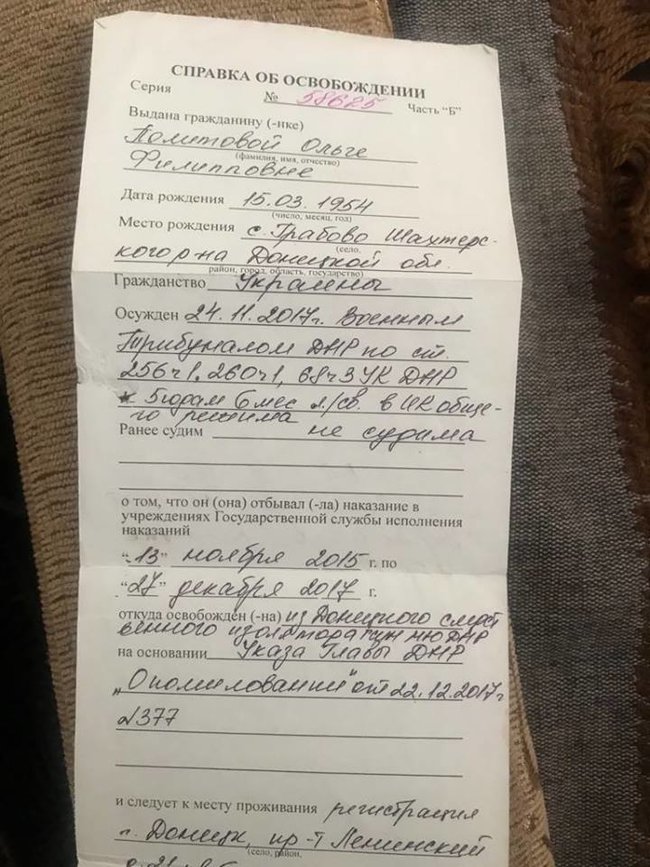 СПРАВКА ОБ ОСВОБОЖДЕНИИ
Серия № 58625 Часть "Б"
Выдана гражданину (-нке)
Политовой Ольге
(фамилия, имя, отчество)
Филипповне
Дата рождения 15.03.1954
(число, месяц, год)
Место рождения с. Грабово Шахтерс-
(село,
кого р-на Донецкой обл.
район, город, область, государство)
Гражданство Украины
Осужден 24.11.2017г. Военным
Трибуналом ДНР по ст.
256ч1, 260ч1, 68ч3 УК ДНР
к 5 годам 6 мес л/св. в ИК обще-
го режима
Ранее судим не судима
о том, что он (она) отбывал (-ла) наказание в
учреждениях Государственной службы исполнения
наказаний
"13" ноября 2015 г. по
"27" декабря 2017 г.
откуда освобожден (-на) из Донецкого следст
венного изолятора ДНР
на основании Указа Главы ДНР
"О помиловании" от 22.12.2017г
№377
и следует к месту проживания регистрация
г. Донецк, пр-т Ленинский
(село, район,